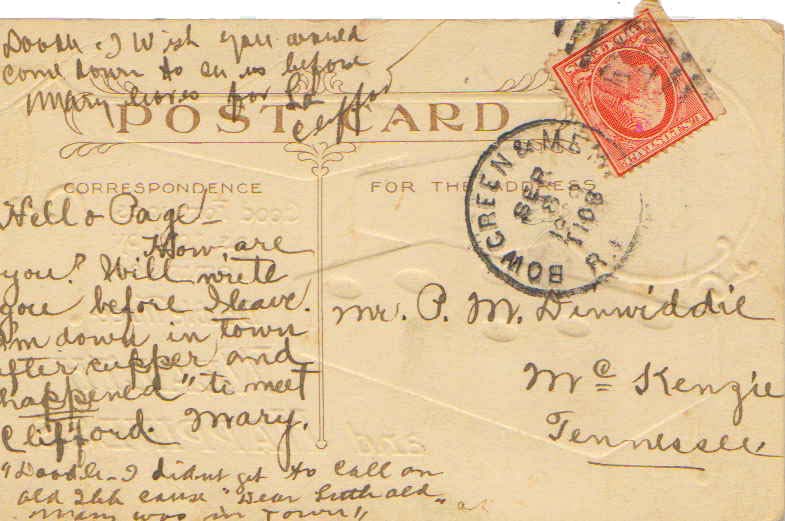 Doodle - I Wish you would
come down to see us before
Mary leaves for
Cliffor
POST CARD
CORRESPONDENCE
FOR THE ADDRESS
BOW GREEN & MEM
SEP
R.
Hello Page!
How are
you? Will write
you before I leave.
I'm down in town
after supper and
happened" to meet
Clifford. Mary.
Mr. P. M. Dinwiddie
Mc Kenzie
Tennessee.
"Doodle - I didn't get to call on
old cause "Dear little old"
Mary was in Town"